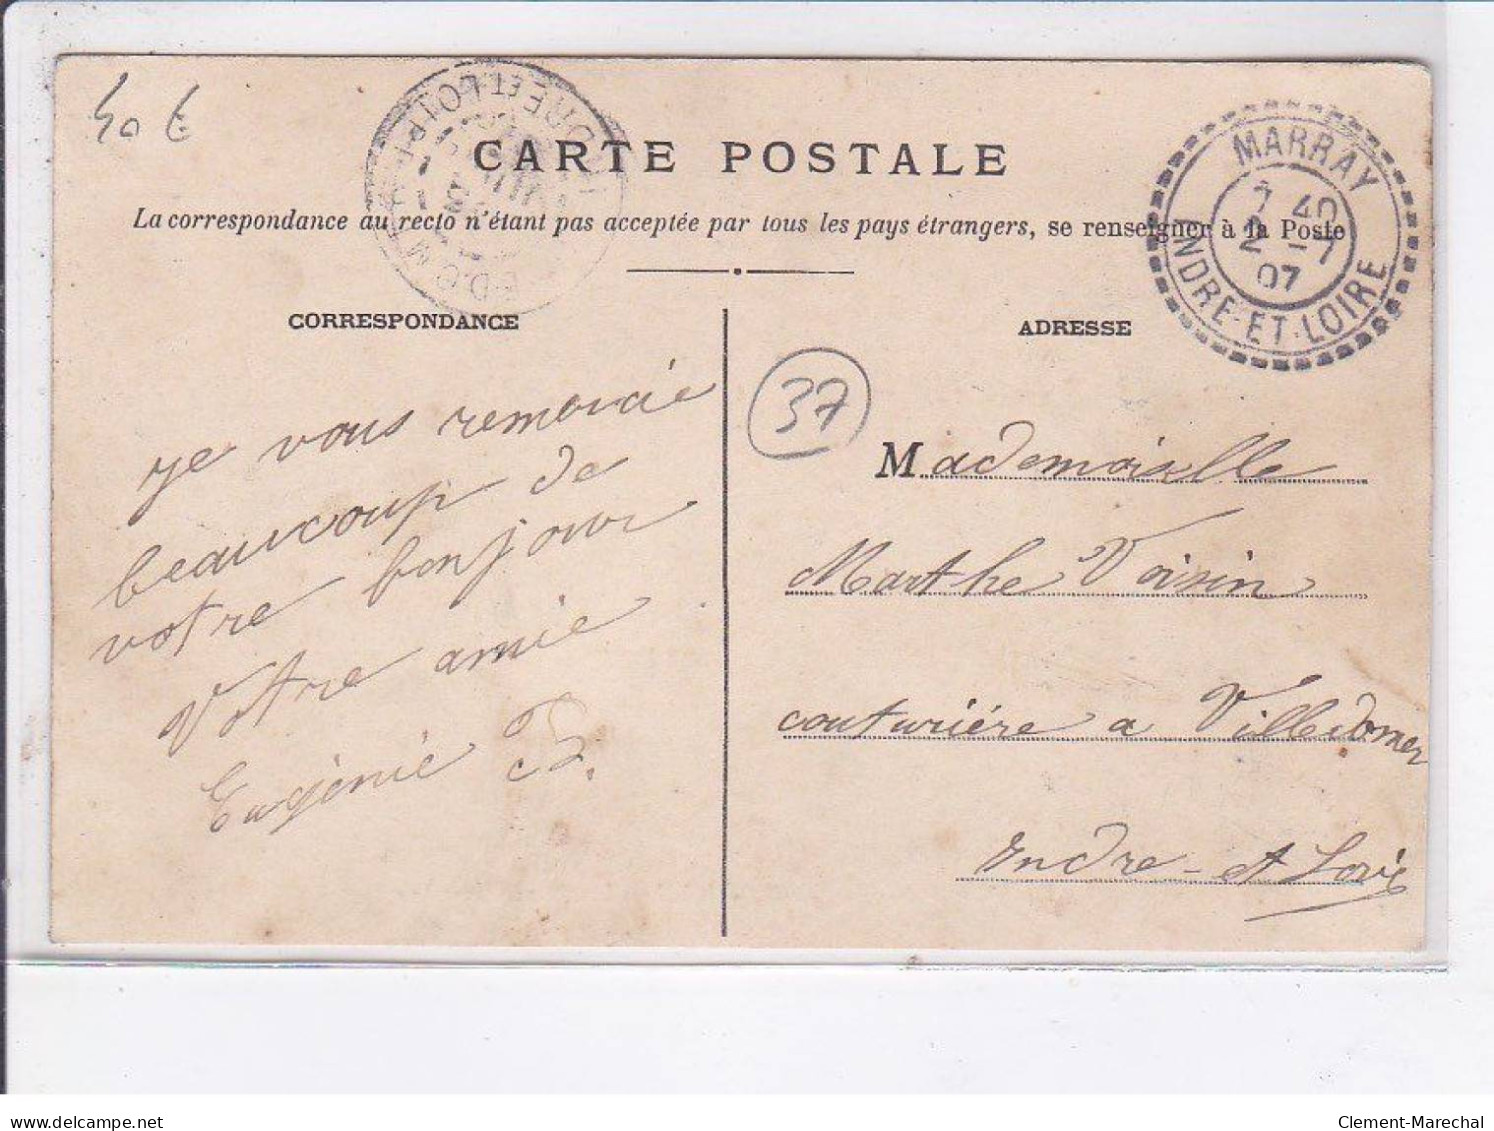 40 €
CARTE POSTALE
La correspondance au recto n'étant pas acceptée par tous les pays étrangers, se renseigner à la Poste
MARRAY
7 40
2 - 7
07
INDRE-ET-LOIRE
CORRESPONDANCE
je vous remercie
beaucoup de
votre bonjour
Votre amie
Eugénie
ADRESSE
37
Mademoiselle
Marthe Voisin
couturiére a Villedomer
Indre-et Loire
delcampe.net
Clement-Marechal